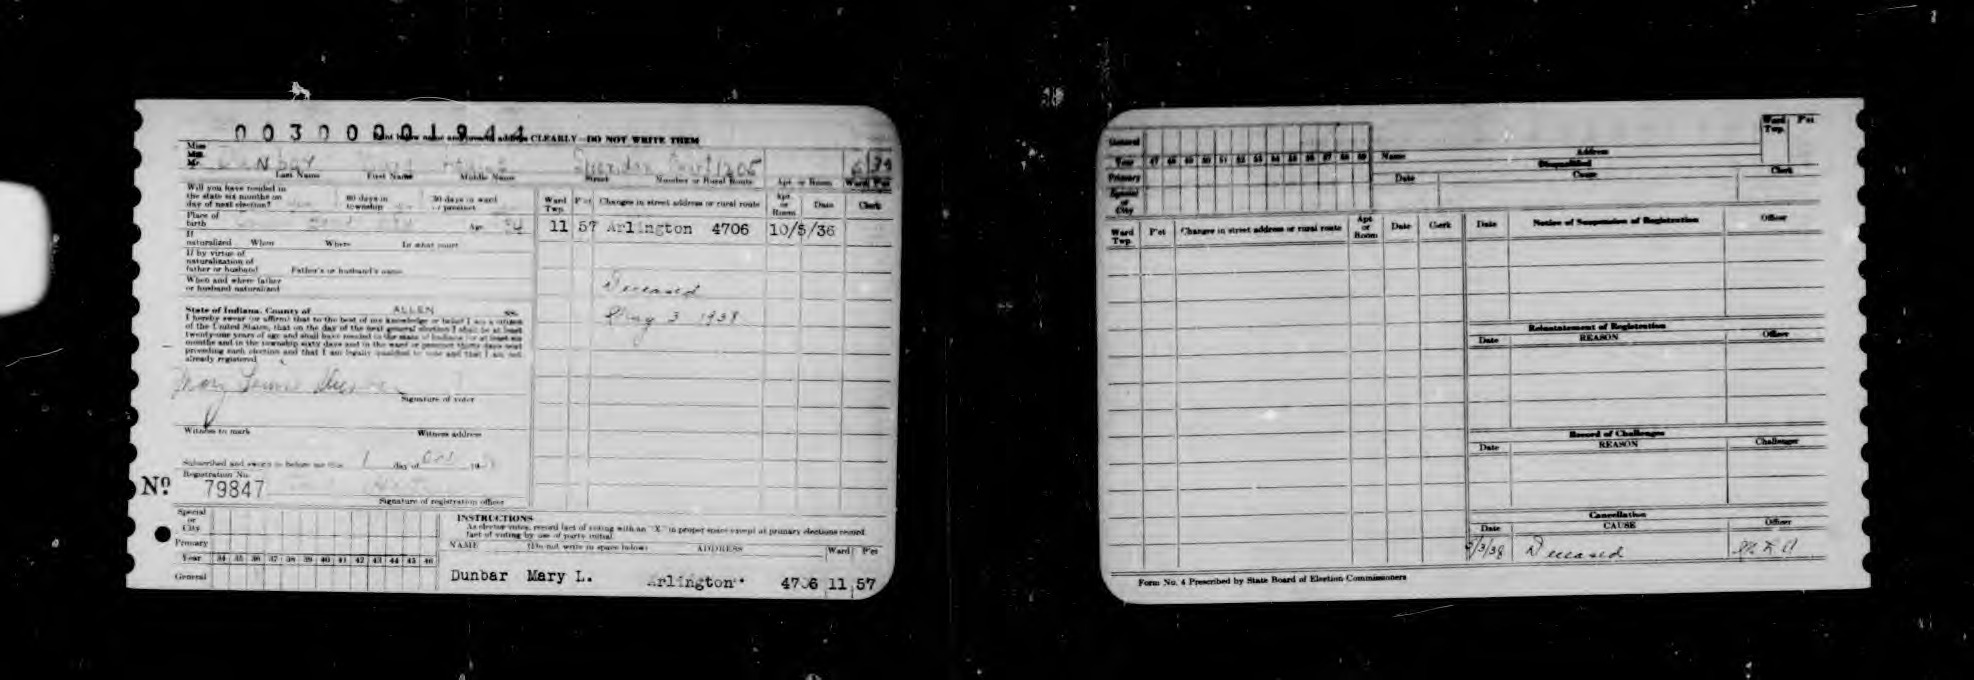 003000001944
CLEARLY—DO NOT WRITE THEM
Miss
Mrs.
Mr.
Dunbar
Sheridan Court 1205
6 34
Last Name First Name Middle Name Street Number or Rural Route Apt. or Room Ward Pct
Will you have resided in
the state six months on
day of next election?
60 days in
township
30 days in ward
or precinct
Place of
birth
Age
If
naturalized When Where In what court
If by virtue of
naturalization of
father or husband Father's or husband's name
When and where father
or husband naturalized
Ward
Twp. P'ct Changes in street address or rural route Apt.
or
Room Date Clerk
11 57 Arlington 4706 10/5/36
Deceased
May 3 1938
State of Indiana, County of ALLEN SS.
I hereby swear (or affirm) that to the best of my knowledge or belief I am a citizen
of the United States, that on the day of the next general election I shall be at least
twenty-one years of age and shall have resided in the state of Indiana for at least six
months and in the township sixty days and in the ward or precinct thirty days next
preceding such election and that I am legally qualified to vote and that I am not
already registered.
Mary Louise Dunbar
Signature of voter
Witness to mark Witness address
Subscribed and sworn to before me this 1 day of Oct 19
Registration No.
Nº 79847
Signature of registration officer
Special
or
City
Primary
Year 34 35 36 37 38 39 40 41 42 43 44 45 46
General
INSTRUCTIONS
As elector votes, record fact of voting with an "X" in proper space except at primary elections record
fact of voting by use of party initial.
NAME (Do not write in space below) ADDRESS Ward P'ct
Dunbar Mary L. Arlington 4706 11 57
General
Year 47 48 49 50 51 52 53 54 55 56 57 58 59
Primary
Special
or
City
Name Address
Ward
Twp. P'ct
Disqualified
Date Cause Clerk
Ward
Twp. P'ct Changes in street address or rural route Apt
or
Room Date Clerk
Date Notice of Suspension of Registration Officer
Reinstatement of Registration
Date REASON Officer
Record of Challenges
Date REASON Challenger
Cancellation
Date CAUSE Officer
5/3/38 Deceased
Form No. 4 Prescribed by State Board of Election Commissioners